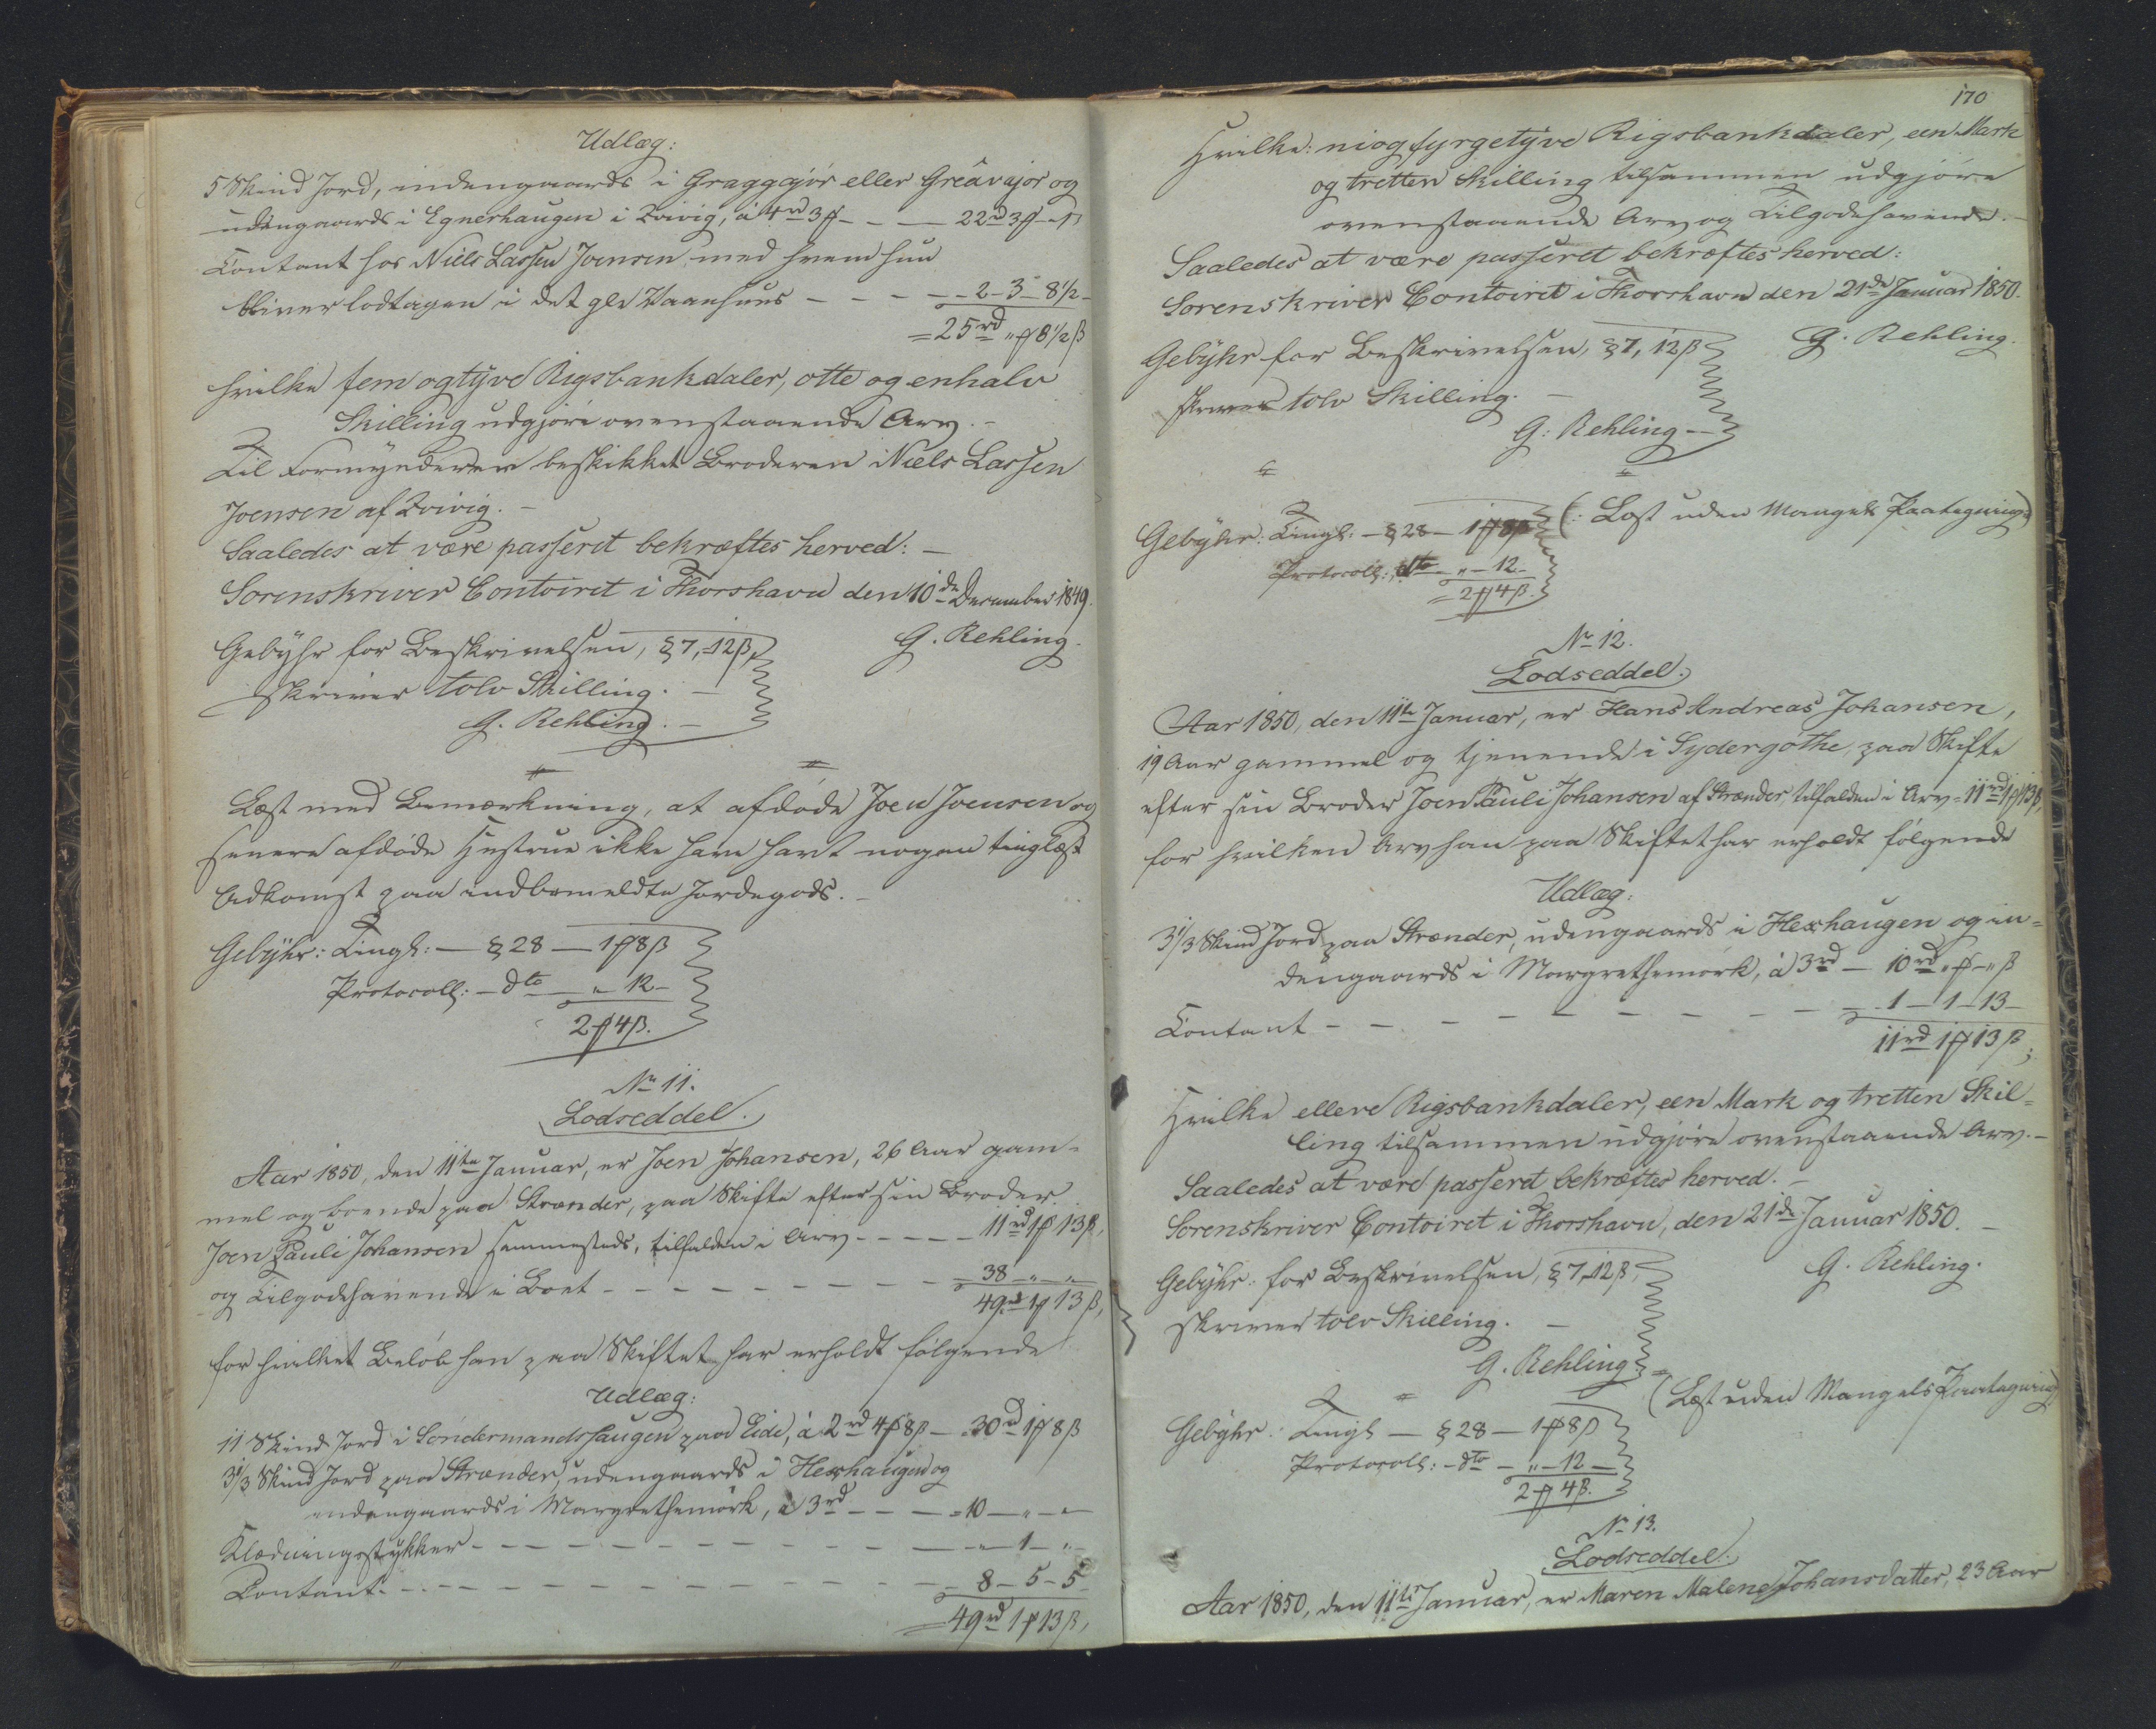 Udlæg:
5 Skind Jord, indengaards i Graggajör eller Greávajor og
udengaards i Egnerhaugen i Qvivig, á 4rd 3ƒ - - - 22rd 3ƒ - ß
Contant hos Niels Lassen Joensen, med hvem hun
bliver lodtagen i det gle Vaanhuus - - - - 2-3-8½
= 25rd „ƒ 8½ß
hvilke fem og tyve Rigsbankdaler, otte og en halv
Skilling udgjöre ovenstaaende Arv. -
Til Formynder er beskikket Broderen Niels Lassen
Joensen af Qvivig. -
Saaledes at være passeret bekræftes herved: -
Sorenskriver Contoiret i Thorshavn den 10de December 1849.
G. Rehling.
Gebyhr for Beskrivelsen, § 7, 12ß,
skriver tolv Skilling. -
G. Rehling. -
Læst med Bemærkning, at afdöde Joen Joensen og
senere afdöde Hustrue ikke have havt nogen tinglæst
Adkomst paa indbemeldte Jordegods. -
Gebyhr: Tingl: - § 28 - 1ƒ 8ß
Protocoll: - dto - „ 12 -
2ƒ 4ß.
No 11.
Lodseddel.
Aar 1850, den 11te Januar, er Joen Johansen, 26 Aar gam-
mel og boende paa Strænder, paa Skifte efter sin Broder
Joen Pauli Johansen sammesteds, tilfalden i Arv - - - - - 11rd 1ƒ 13ß,
og Tilgodehavende i Boet - - - - - - - - - 38 - „ - „
49rd 1ƒ 13ß,
for hvilket Belöb han paa Skiftet har erholdt fölgende
Udlæg:
11 Skind Jord i Söndermandshaugen paa Eide, á 2rd 4ƒ 8ß - 30rd 1ƒ 8ß
3⅓ Skind Jord paa Strænder, udengaards i Hexhaugen og
indengaards i Margrethemörk, á 3rd - - - = 10 - „ - „
Klædningsstykker - - - - - - - - - - - „ - 1 - „ -
Contant - - - - - - - - - - - - 8 - 5 - 5
49rd 1ƒ 13ß,
170
Hvilke: niogfyrgetyve Rigsbankdaler, een Mark
og tretten Skilling tilsammen udgjöre
ovenstaaende Arv og Tilgodehavende. -
Saaledes at være passeret bekræftes herved:
Sorenskriver Contoiret i Thorshavn den 21de Januar 1850.
G. Rehling.
Gebyhr for Beskrivelsen, § 7, 12ß
skriver tolv Skilling. -
G: Rehling -
(: Læst uden Mangels Paategning:)
Gebyhr: Tingl: - § 28 - 1ƒ 8ß
Protocoll: dto - „ - 12 -
= 2ƒ 4ß.
No 12.
Lodseddel.
Aar 1850, den 11te Januar, er Hans Andreas Johansen,
19 Aar gammel og tjenende i Sydergöthe, paa Skifte
efter sin Broder Joen Pauli Johansen af Strænder, tilfalden i Arv = 11rd 1ƒ 13ß,
for hvilken Arv han paa Skiftet har erholdt fölgende
Udlæg:
3⅓ Skind Jord paa Strænder, udengaards i Hexhaugen og in=
dengaards i Margrethemörk, á 3rd - 10rd „ƒ - „ß
Contant - - - - - - - - - - 1 - 1 - 13 -
11rd 1ƒ 13ß;
Hvilke elleve Rigsbankdaler, een Mark og tretten Skil=
ling tilsammen udgjöre ovenstaaende Arv. -
Saaledes at være passeret bekræftes herved. -
Sorenskriver Contoiret i Thorshavn, den 21de Januar 1850. -
G. Rehling.
Gebyhr: for Beskrivelsen, § 7, 12ß,
skriver tolv Skilling. -
G. Rehling.
(Læst uden Mangels Paategning)
Gebyhr: Tingl - § 28 - 1ƒ 8ß
Protocoll: - dto - „ - 12 -
2ƒ 4ß.
No 13.
Lodseddel.
Aar 1850, den 11te Januar, er Maren Malene Johansdatter, 23 Aar